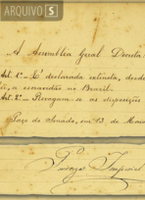 ARQUIVO S
A Assembléa Geral Decreta
Art. 1º É declarada extincta, desde
a escravidão no Brazil.
Art. 2º Revogam-se as disposições
Paço do Senado, em 13 de Maio
Princeza Imperial